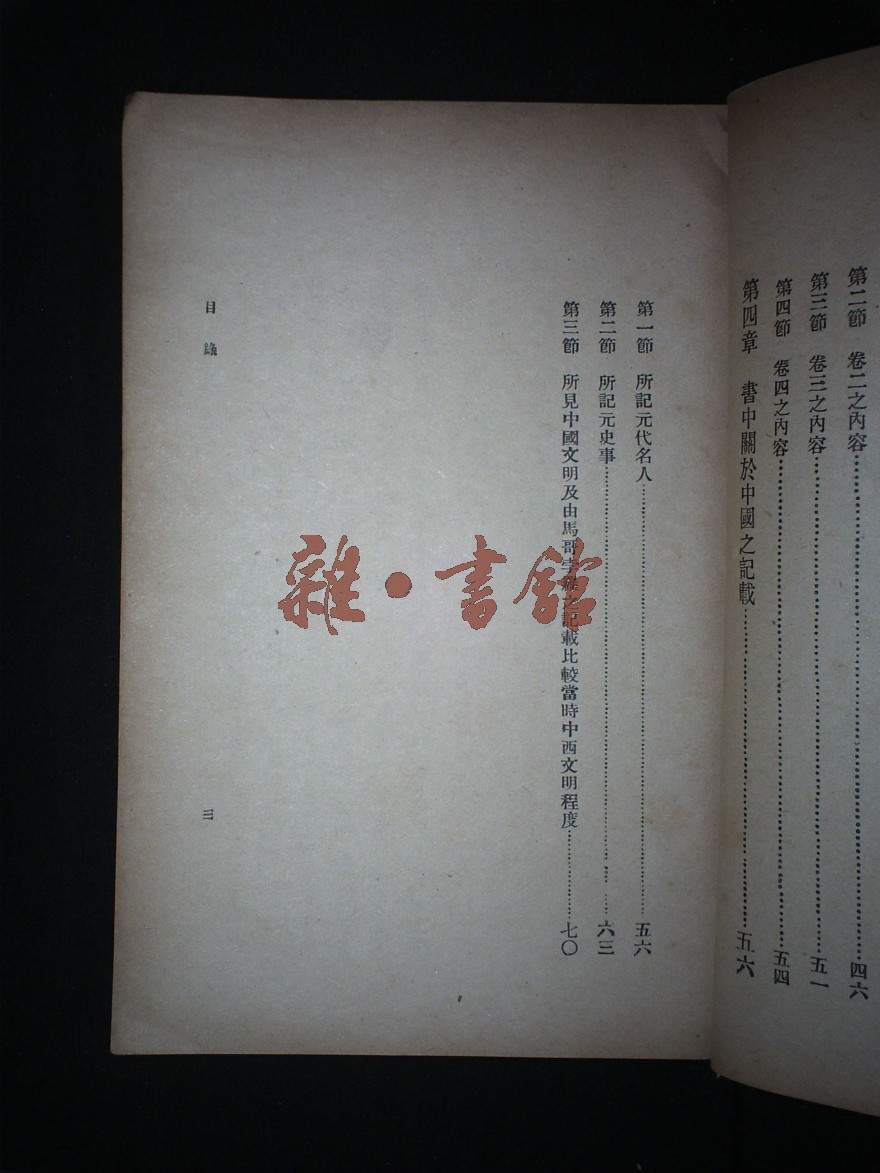 第二節　卷二之內容……四六
第三節　卷三之內容……五一
第四節　卷四之內容……五四
第四章　書中關於中國之記載……五六
第一節　所記元代名人……五六
第二節　所記元史事……六三
第三節　所見中國文明及由馬哥孛羅之記載比較當時中西文明程度……七〇
目錄
三
雜·書館